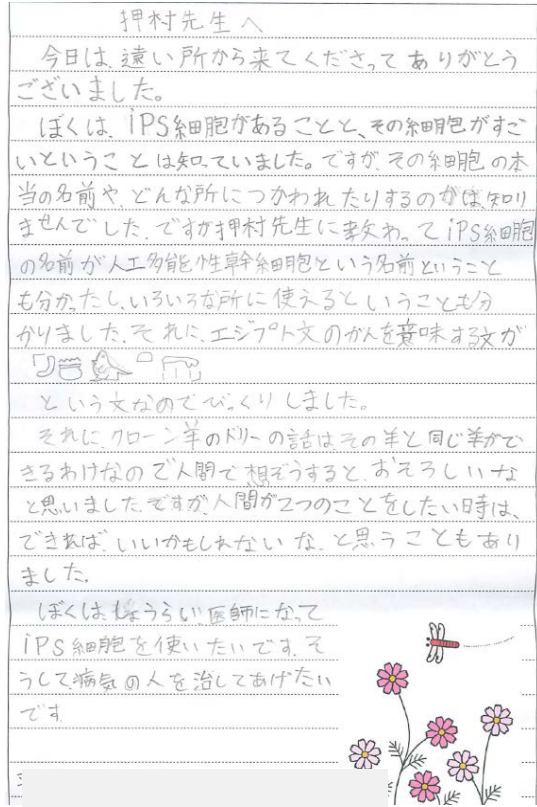 押村先生へ
今日は、遠い所から来てくださってありがとう
ございました。
ぼくは、iPS細胞があることと、その細胞がすご
いということは知っていました。ですが、その細胞の本
当の名前や、どんな所につかわれたりするのかは、知り
ませんでした。ですが押村先生に教わってiPS細胞
の名前が人工多能性幹細胞という名前ということ
も分かったし、いろいろな所に使えるということも分
かりました。それに、エジプト文のかんを意味する文が
という文なのでびっくりしました。
それに、クローン羊のドリーの話は、その羊と同じ羊がで
きるわけなので人間で想ぞうすると、おそろしいな
と思いました。ですが、人間が2つのことをしたい時は、
できれば、いいかもしれないな、と思うこともあり
ました。
ぼくは、しょうらい、医師になって
iPS細胞を使いたいです。そ
うして、病気の人を治してあげたい
です。